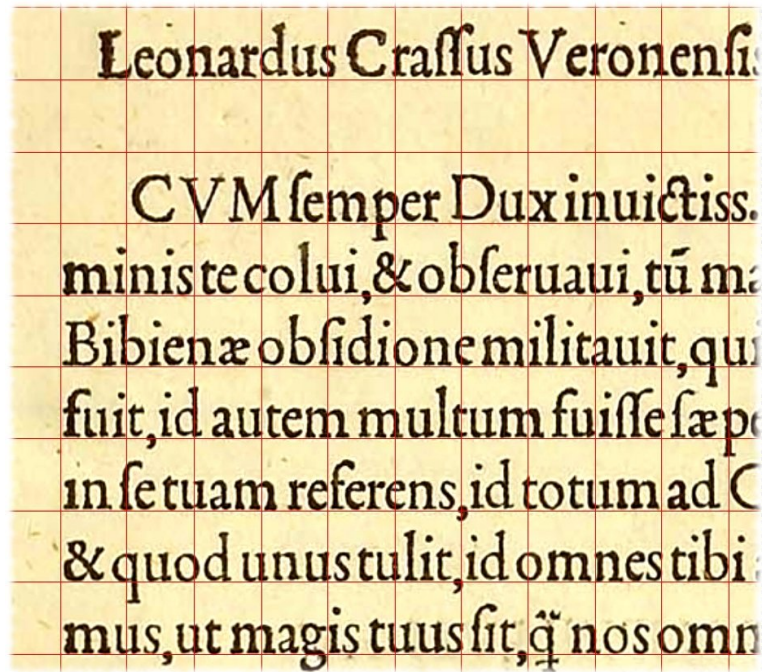 Leonardus Craſſus Veronenſis
CVM ſemper Dux inuictiss.
minis te colui,&obſeruaui,tū
Bibienæ obſidione militauit,
fuit,id autem multum fuiſſe ſæpe
in ſe tuam referens,id totum ad
& quod unus tulit,id omnes tibi
mus,ut magis tuus ſit,q̃̈ nos